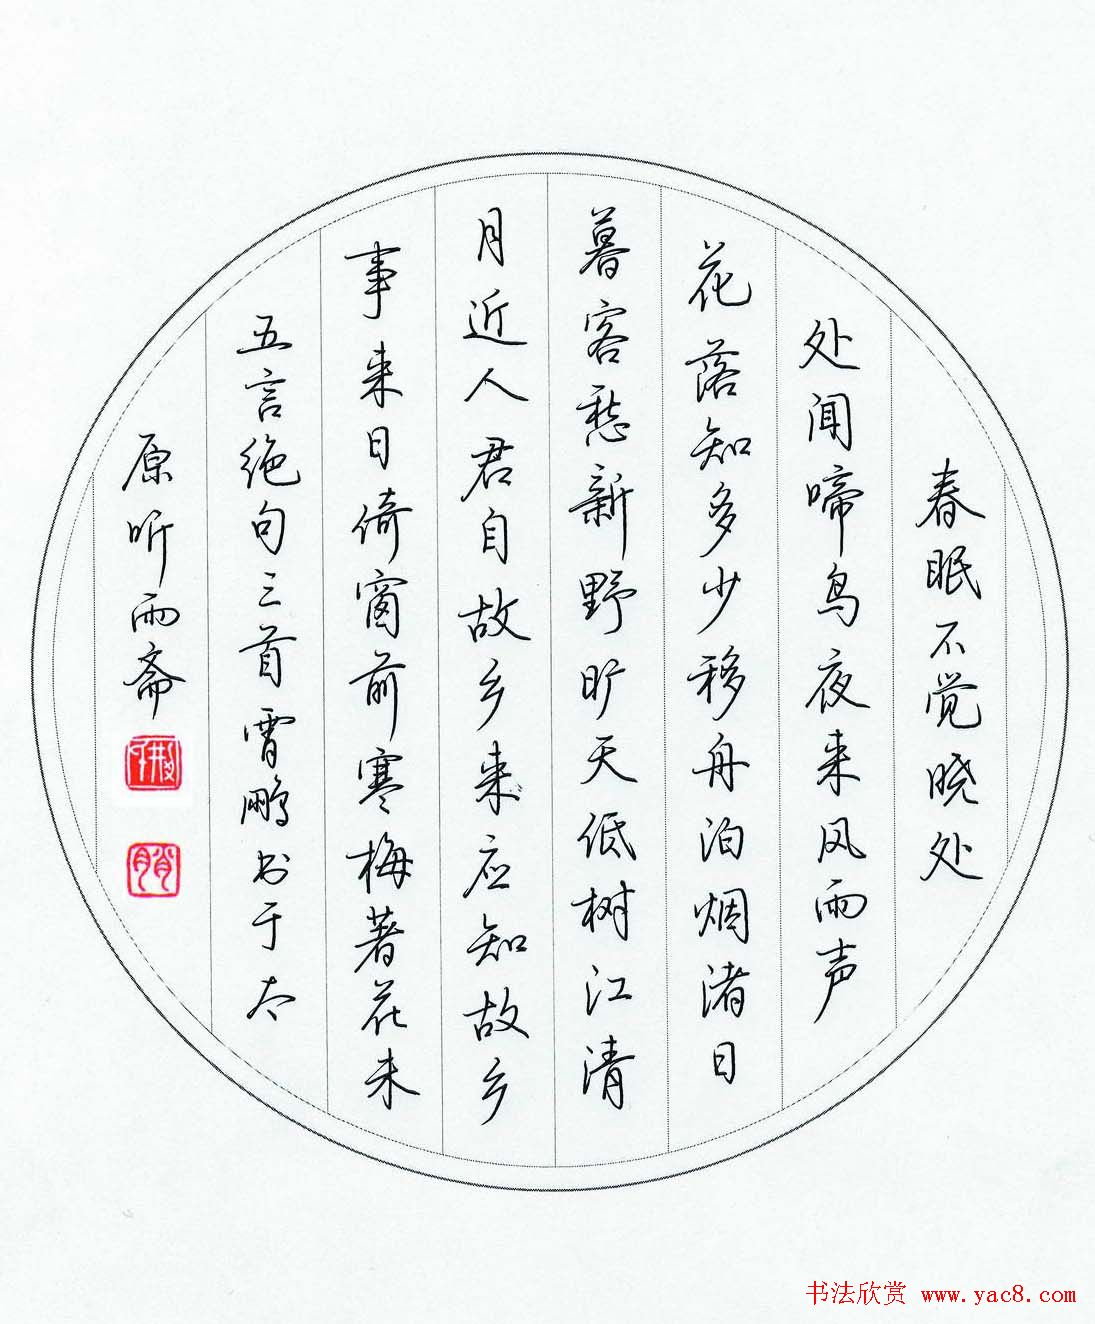 春眠不觉晓处
处闻啼鸟夜来风雨声
花落知多少移舟泊烟渚日
暮客愁新野旷天低树江清
月近人君自故乡来应知故乡
事来日倚窗前寒梅著花未
五言绝句三首霄鹏书于太
原听雨斋
书法欣赏 www.yac8.com